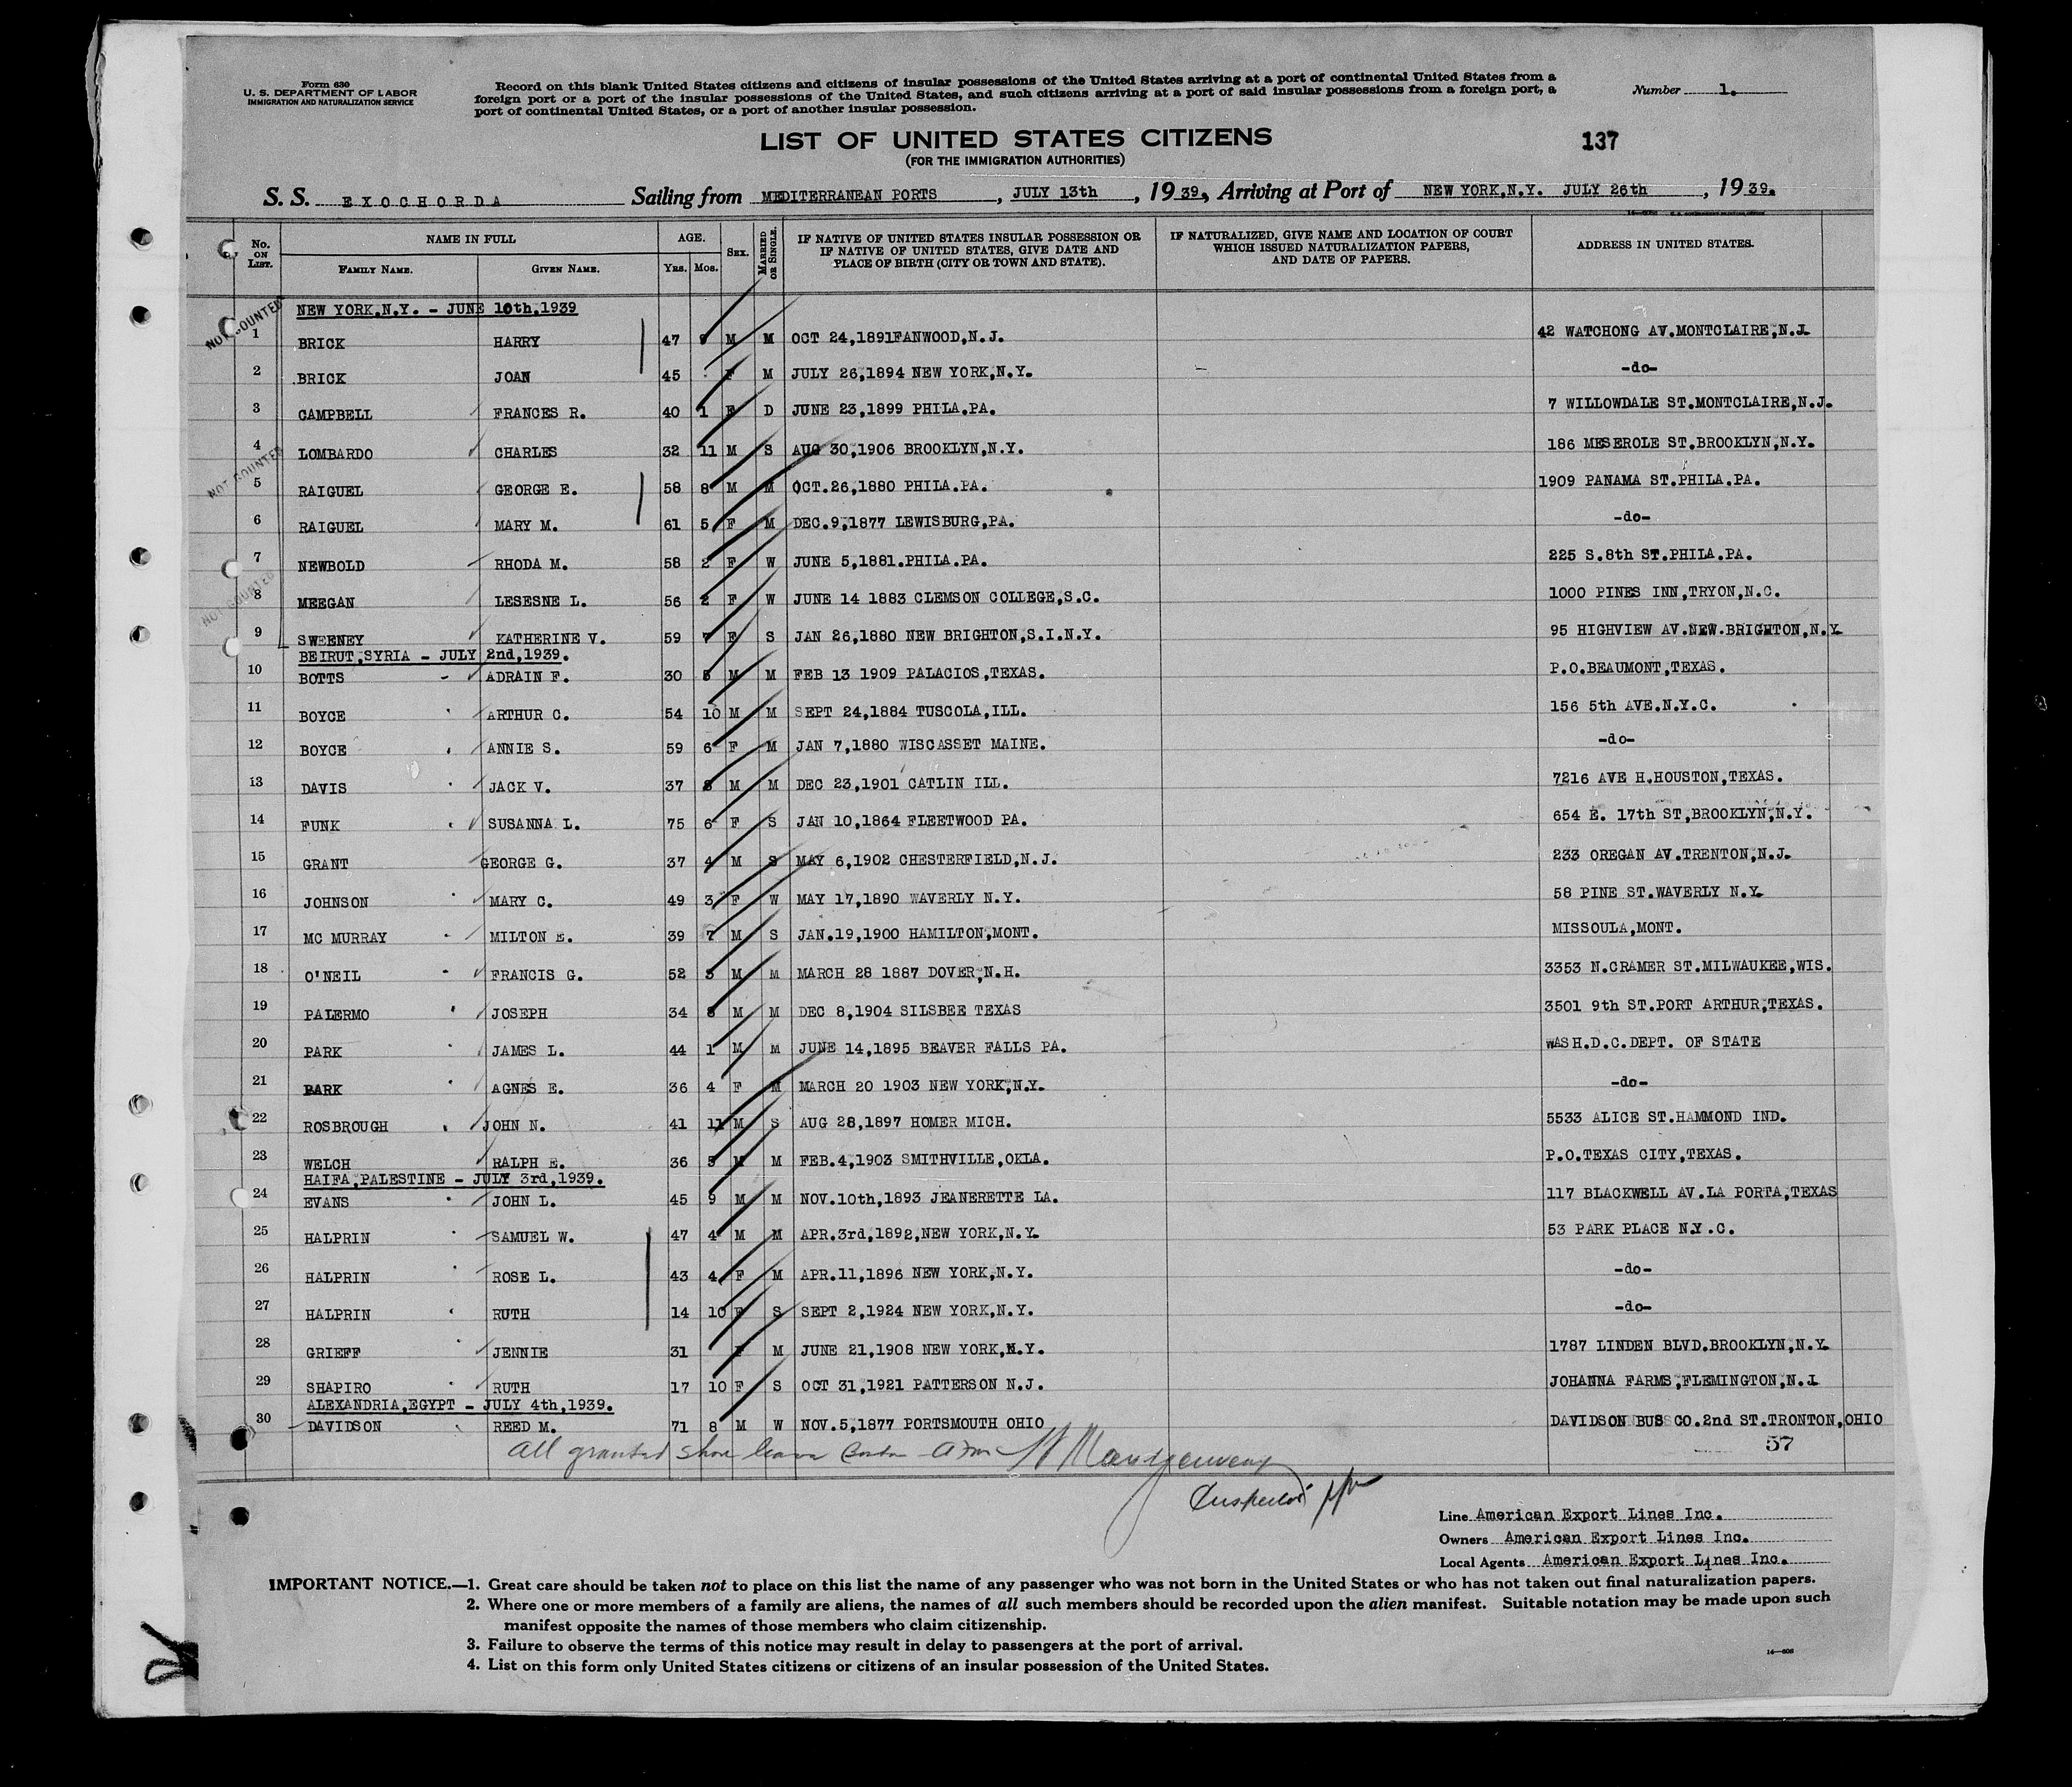 Form 630
U. S. DEPARTMENT OF LABOR
IMMIGRATION AND NATURALIZATION SERVICE
Record on this blank United States citizens and citizens of insular possessions of the United States arriving at a port of continental United States from a
foreign port or a port of the insular possessions of the United States, and such citizens arriving at a port of said insular possessions from a foreign port, a
port of continental United States, or a port of another insular possession.
Number 1.
LIST OF UNITED STATES CITIZENS
(FOR THE IMMIGRATION AUTHORITIES)
137
S. S. EXOCHORDA Sailing from MEDITERRANEAN PORTS, JULY 13th, 1939, Arriving at Port of NEW YORK,N.Y. JULY 26th, 1939.
No. ON LIST. NAME IN FULL AGE. SEX. MARRIED OR SINGLE. IF NATIVE OF UNITED STATES INSULAR POSSESSION OR IF NATIVE OF UNITED STATES, GIVE DATE AND PLACE OF BIRTH (CITY OR TOWN AND STATE). IF NATURALIZED, GIVE NAME AND LOCATION OF COURT WHICH ISSUED NATURALIZATION PAPERS, AND DATE OF PAPERS. ADDRESS IN UNITED STATES.
FAMILY NAME. GIVEN NAME. YRS. MOS.
NEW YORK,N.Y. - JUNE 10th,1939
NOT COUNTED
1 BRICK HARRY 47 9 M M OCT 24,1891FANWOOD,N.J. 42 WATCHONG AV.MONTCLAIRE,N.J.
2 BRICK JOAN 45 F M JULY 26,1894 NEW YORK,N.Y. -do-
3 CAMPBELL FRANCES R. 40 1 F D JUNE 23,1899 PHILA.PA. 7 WILLOWDALE ST.MONTCLAIRE,N.J.
4 LOMBARDO CHARLES 32 11 M S AUG 30,1906 BROOKLYN,N.Y. 186 MESEROLE ST.BROOKLYN,N.Y.
NOT COUNTED
5 RAIGUEL GEORGE E. 58 8 M M OCT.26,1880 PHILA.PA. 1909 PANAMA ST.PHILA.PA.
6 RAIGUEL MARY M. 61 5 F M DEC.9,1877 LEWISBURG,PA. -do-
7 NEWBOLD RHODA M. 58 2 F W JUNE 5,1881.PHILA.PA. 225 S.8th ST.PHILA.PA.
NOT COUNTED
8 MEEGAN LESESNE L. 56 2 F W JUNE 14 1883 CLEMSON COLLEGE,S.C. 1000 PINES INN,TRYON,N.C.
9 SWEENEY KATHERINE V. 59 7 F S JAN 26,1880 NEW BRIGHTON,S.I.N.Y. 95 HIGHVIEW AV.NEW.BRIGHTON,N.Y.
BEIRUT,SYRIA - JULY 2nd,1939.
10 BOTTS ADRAIN F. 30 5 M M FEB 13 1909 PALACIOS,TEXAS. P.O.BEAUMONT,TEXAS.
11 BOYCE ARTHUR C. 54 10 M M SEPT 24,1884 TUSCOLA,ILL. 156 5th AVE.N.Y.C.
12 BOYCE ANNIE S. 59 6 F M JAN 7,1880 WISCASSET MAINE. -do-
13 DAVIS JACK V. 37 8 M M DEC 23,1901 CATLIN ILL. 7216 AVE H.HOUSTON,TEXAS.
14 FUNK SUSANNA L. 75 6 F S JAN 10,1864 FLEETWOOD PA. 654 E. 17th ST,BROOKLYN,N.Y.
15 GRANT GEORGE G. 37 4 M S MAY 6,1902 CHESTERFIELD,N.J. 233 OREGAN AV.TRENTON,N.J.
16 JOHNSON MARY C. 49 3 F W MAY 17,1890 WAVERLY N.Y. 58 PINE ST.WAVERLY N.Y.
17 MC MURRAY MILTON E. 39 7 M S JAN.19,1900 HAMILTON,MONT. MISSOULA,MONT.
18 O'NEIL FRANCIS G. 52 3 M M MARCH 28 1887 DOVER,N.H. 3353 N.CRAMER ST.MILWAUKEE,WIS.
19 PALERMO JOSEPH 34 8 M M DEC 8,1904 SILSBEE TEXAS 3501 9th ST.PORT ARTHUR,TEXAS.
20 PARK JAMES L. 44 1 M M JUNE 14,1895 BEAVER FALLS PA. WASH.D.C.DEPT. OF STATE
21 PARK AGNES E. 36 4 F M MARCH 20 1903 NEW YORK,N.Y. -do-
22 ROSBROUGH JOHN N. 41 11 M S AUG 28,1897 HOMER MICH. 5533 ALICE ST.HAMMOND IND.
23 WELCH RALPH E. 36 5 M M FEB.4,1903 SMITHVILLE,OKLA. P.O.TEXAS CITY,TEXAS.
HAIFA,PALESTINE - JULY 3rd,1939.
24 EVANS JOHN L. 45 9 M M NOV.10th,1893 JEANERETTE LA. 117 BLACKWELL AV.LA PORTA,TEXAS
25 HALPRIN SAMUEL W. 47 4 M M APR.3rd,1892,NEW YORK,N.Y. 53 PARK PLACE N.Y.C.
26 HALPRIN ROSE L. 43 4 F M APR.11,1896 NEW YORK,N.Y. -do-
27 HALPRIN RUTH 14 10 F S SEPT 2,1924 NEW YORK,N.Y. -do-
28 GRIEFF JENNIE 31 F M JUNE 21,1908 NEW YORK,N.Y. 1787 LINDEN BLVD.BROOKLYN,N.Y.
29 SHAPIRO RUTH 17 10 F S OCT 31,1921 PATTERSON N.J. JOHANNA FARMS,FLEMINGTON,N.J.
ALEXANDRIA,EGYPT - JULY 4th,1939.
30 DAVIDSON REED M. 71 8 M W NOV.5,1877 PORTSMOUTH OHIO DAVIDSON BUS CO.2nd ST.TRONTON,OHIO
All granted shore leave
57
Inspector
Line American Export Lines Inc.
Owners American Export Lines Inc.
Local Agents American Export Lines Inc.
IMPORTANT NOTICE.—1. Great care should be taken not to place on this list the name of any passenger who was not born in the United States or who has not taken out final naturalization papers.
2. Where one or more members of a family are aliens, the names of all such members should be recorded upon the alien manifest. Suitable notation may be made upon such
manifest opposite the names of those members who claim citizenship.
3. Failure to observe the terms of this notice may result in delay to passengers at the port of arrival.
4. List on this form only United States citizens or citizens of an insular possession of the United States.